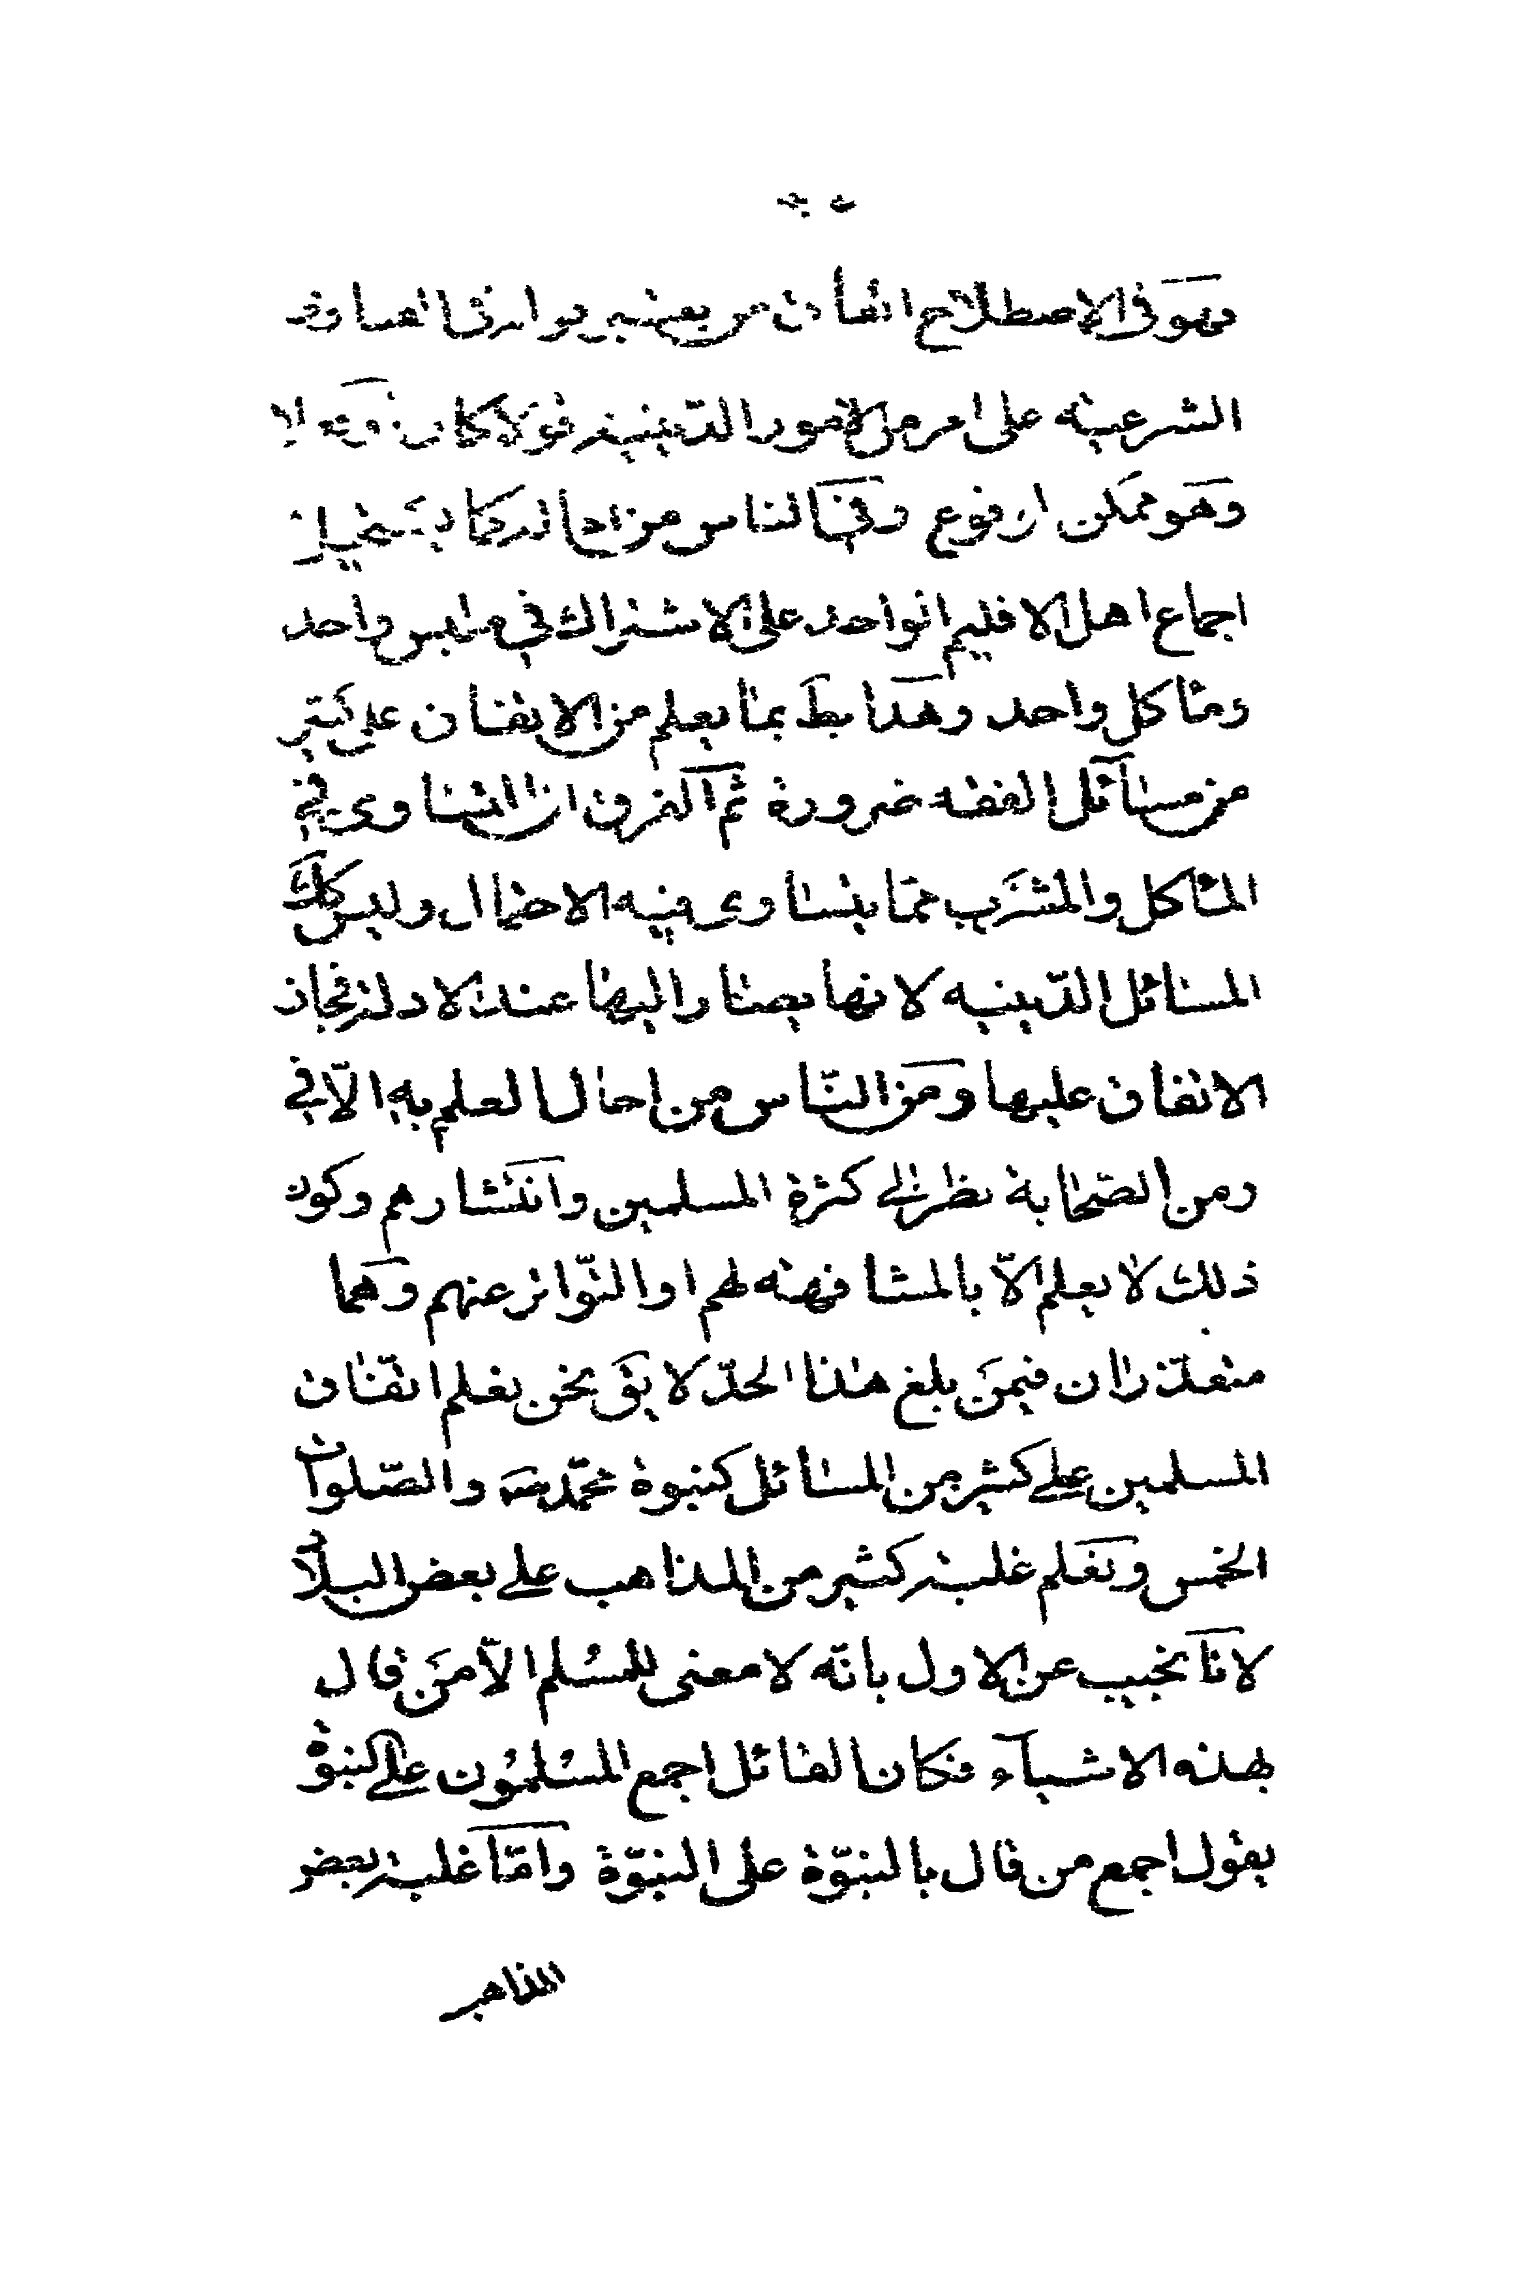 وهو فى الاصطلاح اتفاق من يعتبر قوله فى الفتاوى
الشرعيه على امر من الامور الدّينيه قولا كان او فعلا
وهو ممكن الوقوع وفى الناس من احاله كما يستحيل
اجماع اهل الاقليم الواحد على الاشتراك فى ملبس واحد
ومأكل واحد وهذا بط بما يعلم من الاتفاق على كثير
من مسائل الفقه ضرورة ثم الفرق ان التساوى فى
المأكل والمشرب ممّا يتساوى فيه الاحتمال وليس كك
المسائل الدّينيه لانها يصار اليها عند الادلة فجاز
الاتفاق عليها ومن النّاس من احال العلم به الاّ فى
ومن الصّحابة نظرا الى كثرة المسلمين وانتشارهم وكون
ذلك لا يعلم الاّ بالمشافهة لهم او التّواتر عنهم وهما
متعذّران فيمن بلغ هذا الحدّ لا يق نحن نعلم اتفاق
المسلمين على كثير من المسائل كنبوة محمّد ص والصّلوات
الخمس ونعلم غلبة كثير من المذاهب على بعض البلاد
لانا نجيب عن الاول بانّه لا معنى للمسلم الاّ من قال
بهذه الاشياء فكان القائل اجمع المسلمون على النبوة
يقول اجمع من قال بالنبوّة على النبوّة وامّا غلبة بعض
المذاهب